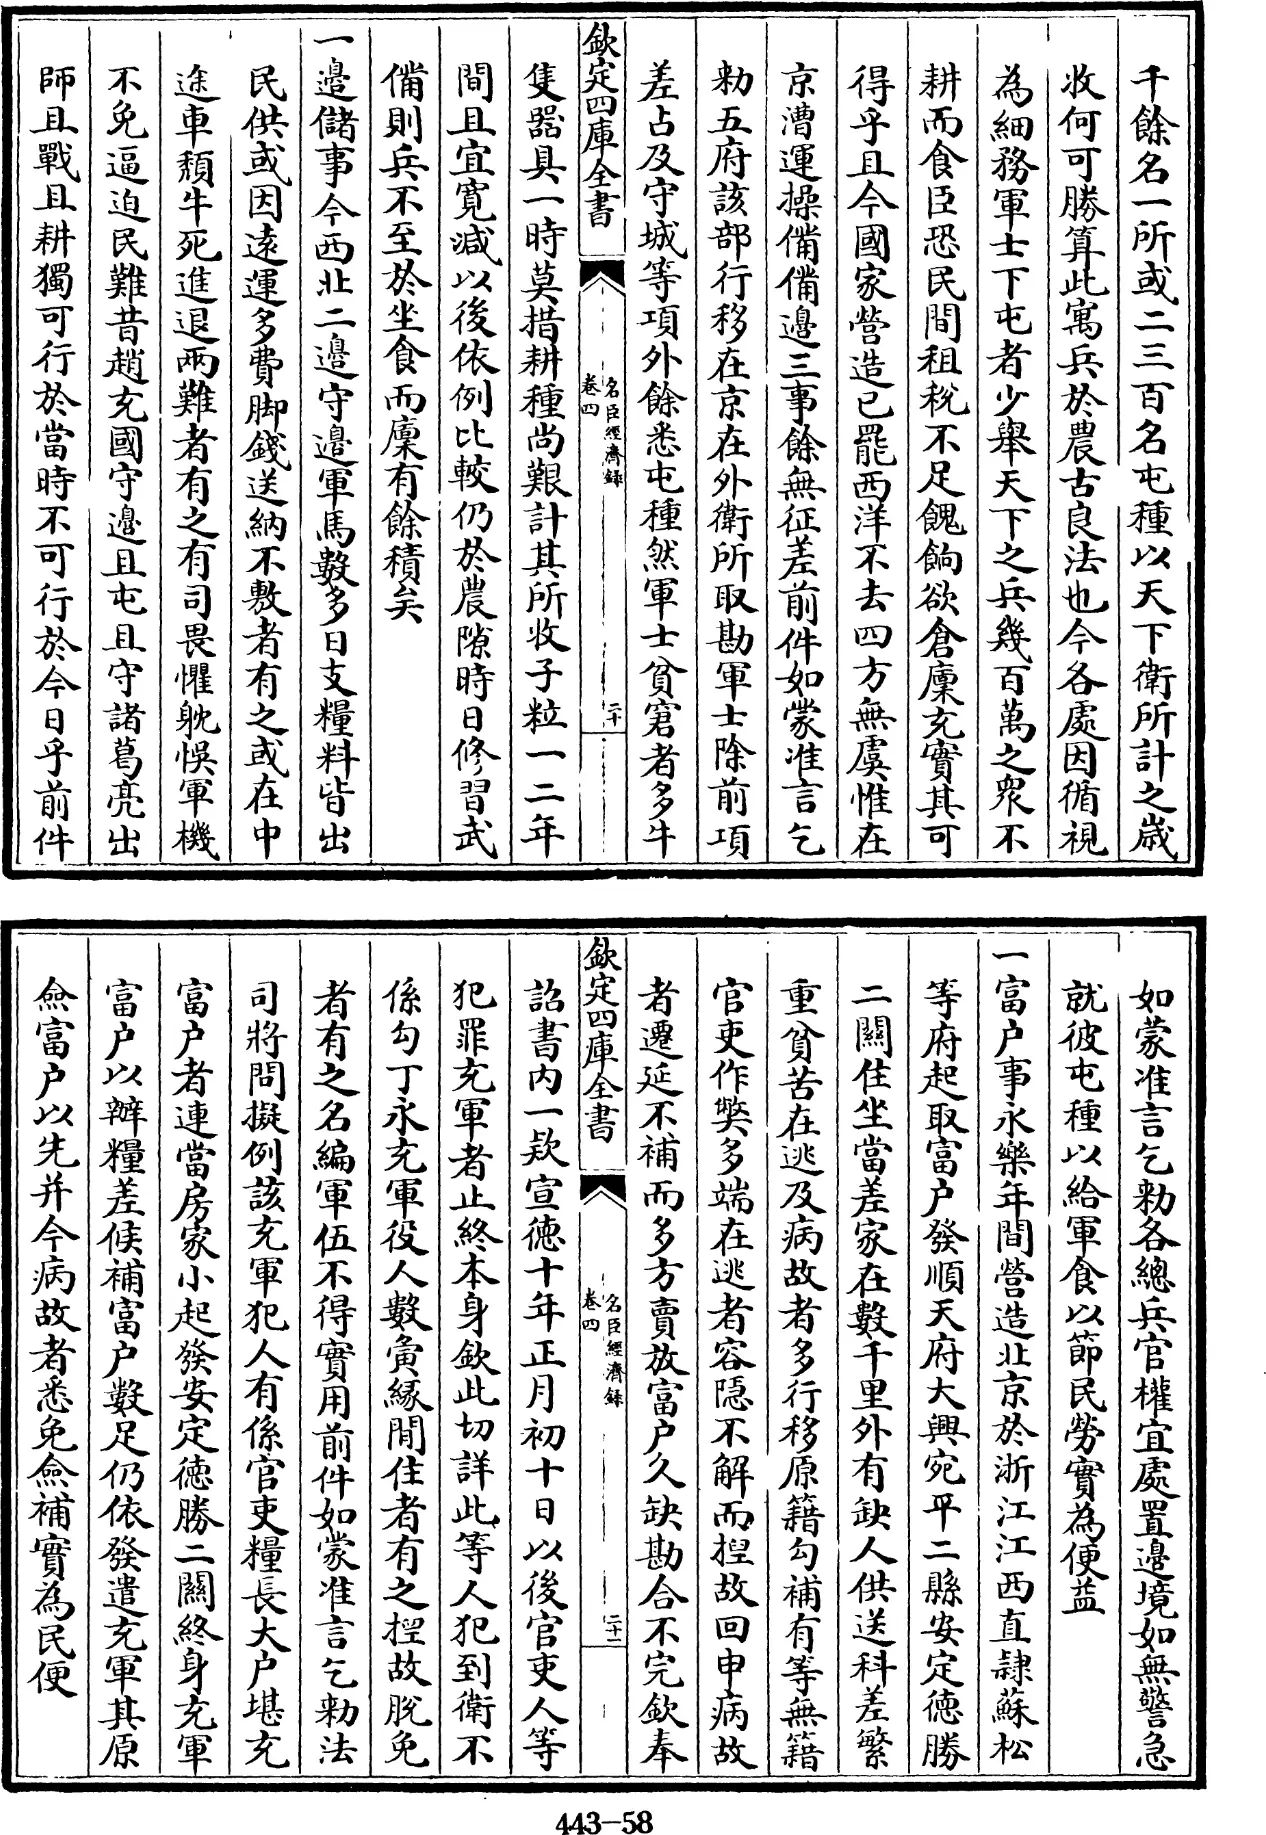 千餘名一所或二三百名屯種以天下衛所計之歲
收何可勝算此寓兵於農古良法也今各處因循視
為細務軍士下屯者少舉天下之兵幾百萬之衆不
耕而食臣恐民間租稅不足餽餉欲倉廩充實其可
得乎且今國家營造已罷西洋不去四方無虞惟在
京漕運操備備邊三事餘無征差前件如蒙准言乞
勑五府該部行移在京在外衛所取勘軍士除前項
差占及守城等項外餘悉屯種然軍士貧窘者多牛
欽定四庫全書
名臣經濟録
卷四
二十
隻器具一時莫措耕種尚艱計其所收子粒一二年
間且宜寛減以後依例比較仍於農隙時日修習武
備則兵不至於坐食而廩有餘積矣
一邉儲事今西北二邉守邉軍馬數多日支糧料皆出
民供或因逺運多費脚錢送納不敷者有之或在中
途車頽牛死進退兩難者有之有司畏懼躭悞軍機
不免逼迫民難昔趙充國守邉且屯且守諸葛亮出
師且戰且耕獨可行於當時不可行於今日乎前件
如蒙准言乞勑各總兵官權宜處置邉境如無警急
就彼屯種以給軍食以節民勞實為便益
一富户事永樂年間營造北京於浙江江西直隷蘇松
等府起取富户發順天府大興宛平二縣安定德勝
二關住坐當差家在數千里外有缺人供送科差繁
重貧苦在逃及病故者多行移原籍勾補有等無籍
官吏作弊多端在逃者容隠不解而捏故回申病故
者遷延不補而多方賣放富户久缺勘合不完欽奉
欽定四庫全書
名臣經濟録
卷四
二十一
詔書内一欵宣德十年正月初十日以後官吏人等
犯罪充軍者止終本身欽此切詳此等人犯到衛不
係勾丁永充軍役人數夤緣閒住者有之捏故脱免
者有之名編軍伍不得實用前件如蒙准言乞勑法
司將問擬例該充軍犯人有係官吏糧長大户堪充
富户者連當房家小起發安定德勝二關終身充軍
富户以辦糧差候補富户數足仍依發遣充軍其原
僉富户以先并今病故者悉免僉補實為民便
443-58